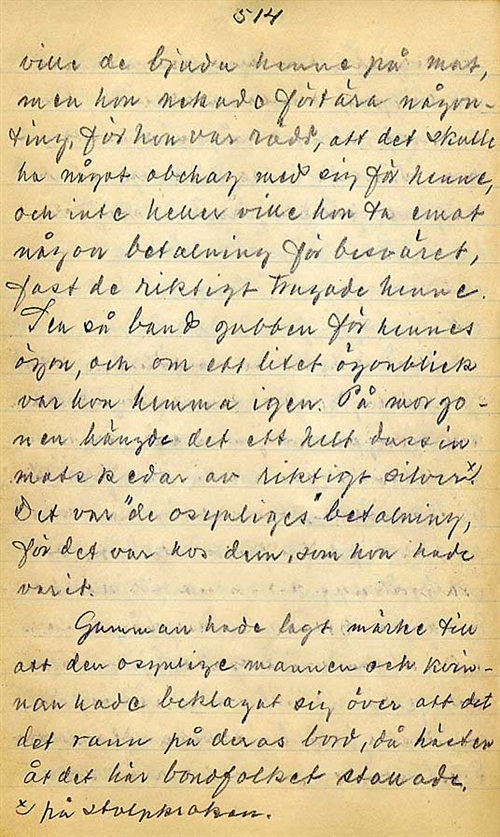 514
ville de bjuda henne på mat,
men hon nekade förtära någon-
ting, för hon var rädd, att det skulle
ha något obehag med sig för henne,
och inte heller ville hon ta emot
någon betalning för besväret,
fast de riktigt trugade henne.
Sen så band gubben för hennes
ögon, och om ett litet ögonblick
var hon hemma igen. På morgo-
nen hängde det ett helt dussin
matskedar av riktigt silver x).
Det var "de osynliges" betalning,
för det var hos dem, som hon hade
varit.
Gumman hade lagt märke till
att den osynlige mannen och kvin-
nan hade beklagat sig över att det
det rann på deras bord, då hästen
åt det här bondfolket stallade.
x) på stolpkroken.